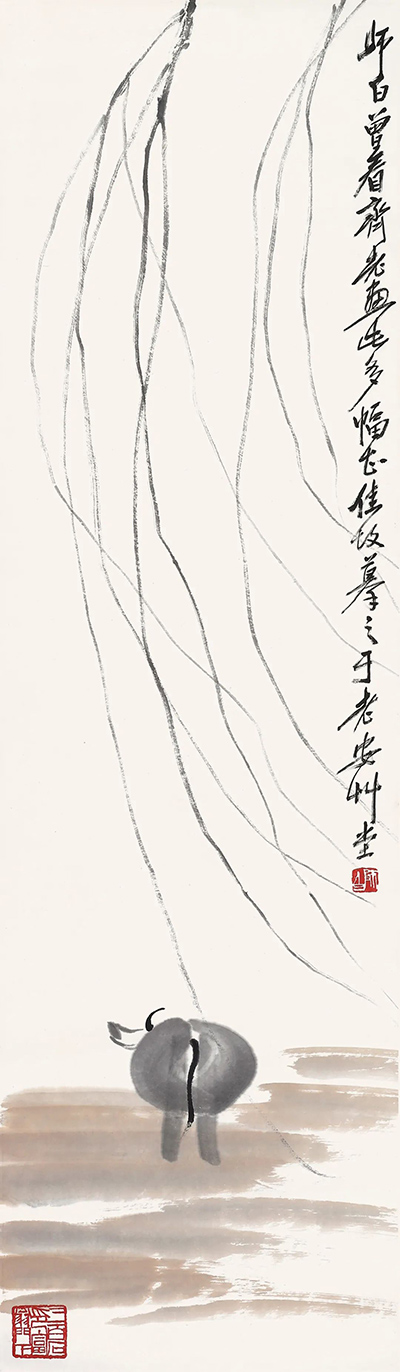 师白曾看齊老畫此多幅甚佳故摹之于老安艸堂